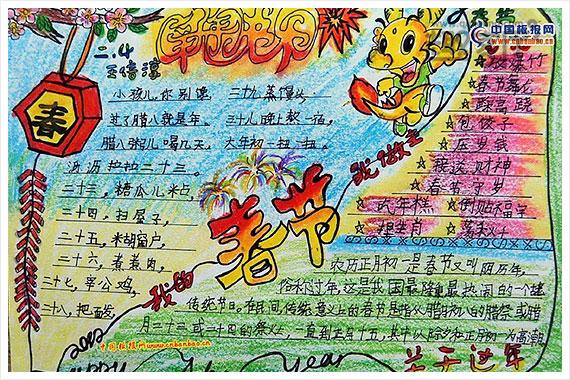 中国板报网
www.cnbanbao.cn
二.4
春
小孩儿你别馋
过了腊八就是年,
腊八粥儿喝几天,
沥沥拉拉二十三。
二十三,糖瓜儿粘,
二十四,扫屋子,
二十五,
二十六,煮煮肉,
二十七,宰公鸡,
二十八,把面
三十儿晚上熬一宿,
大年初一扭一扭。
我的
春节
我做主
放爆竹
春节舞龙
踩高跷
包饺子
压岁钱
接送财神
春节守岁
吃年糕
倒贴福字
农历正月初一是春节又叫阴历年,
传统节日。在民间,传统意义上的春节是指从腊月初八的腊祭或腊
月二十三或二十四的祭灶,一直到正月十五,其中以除夕和正月初一为高潮
2012
中国板报网www.cnbanbao.cn
Year
关于过年